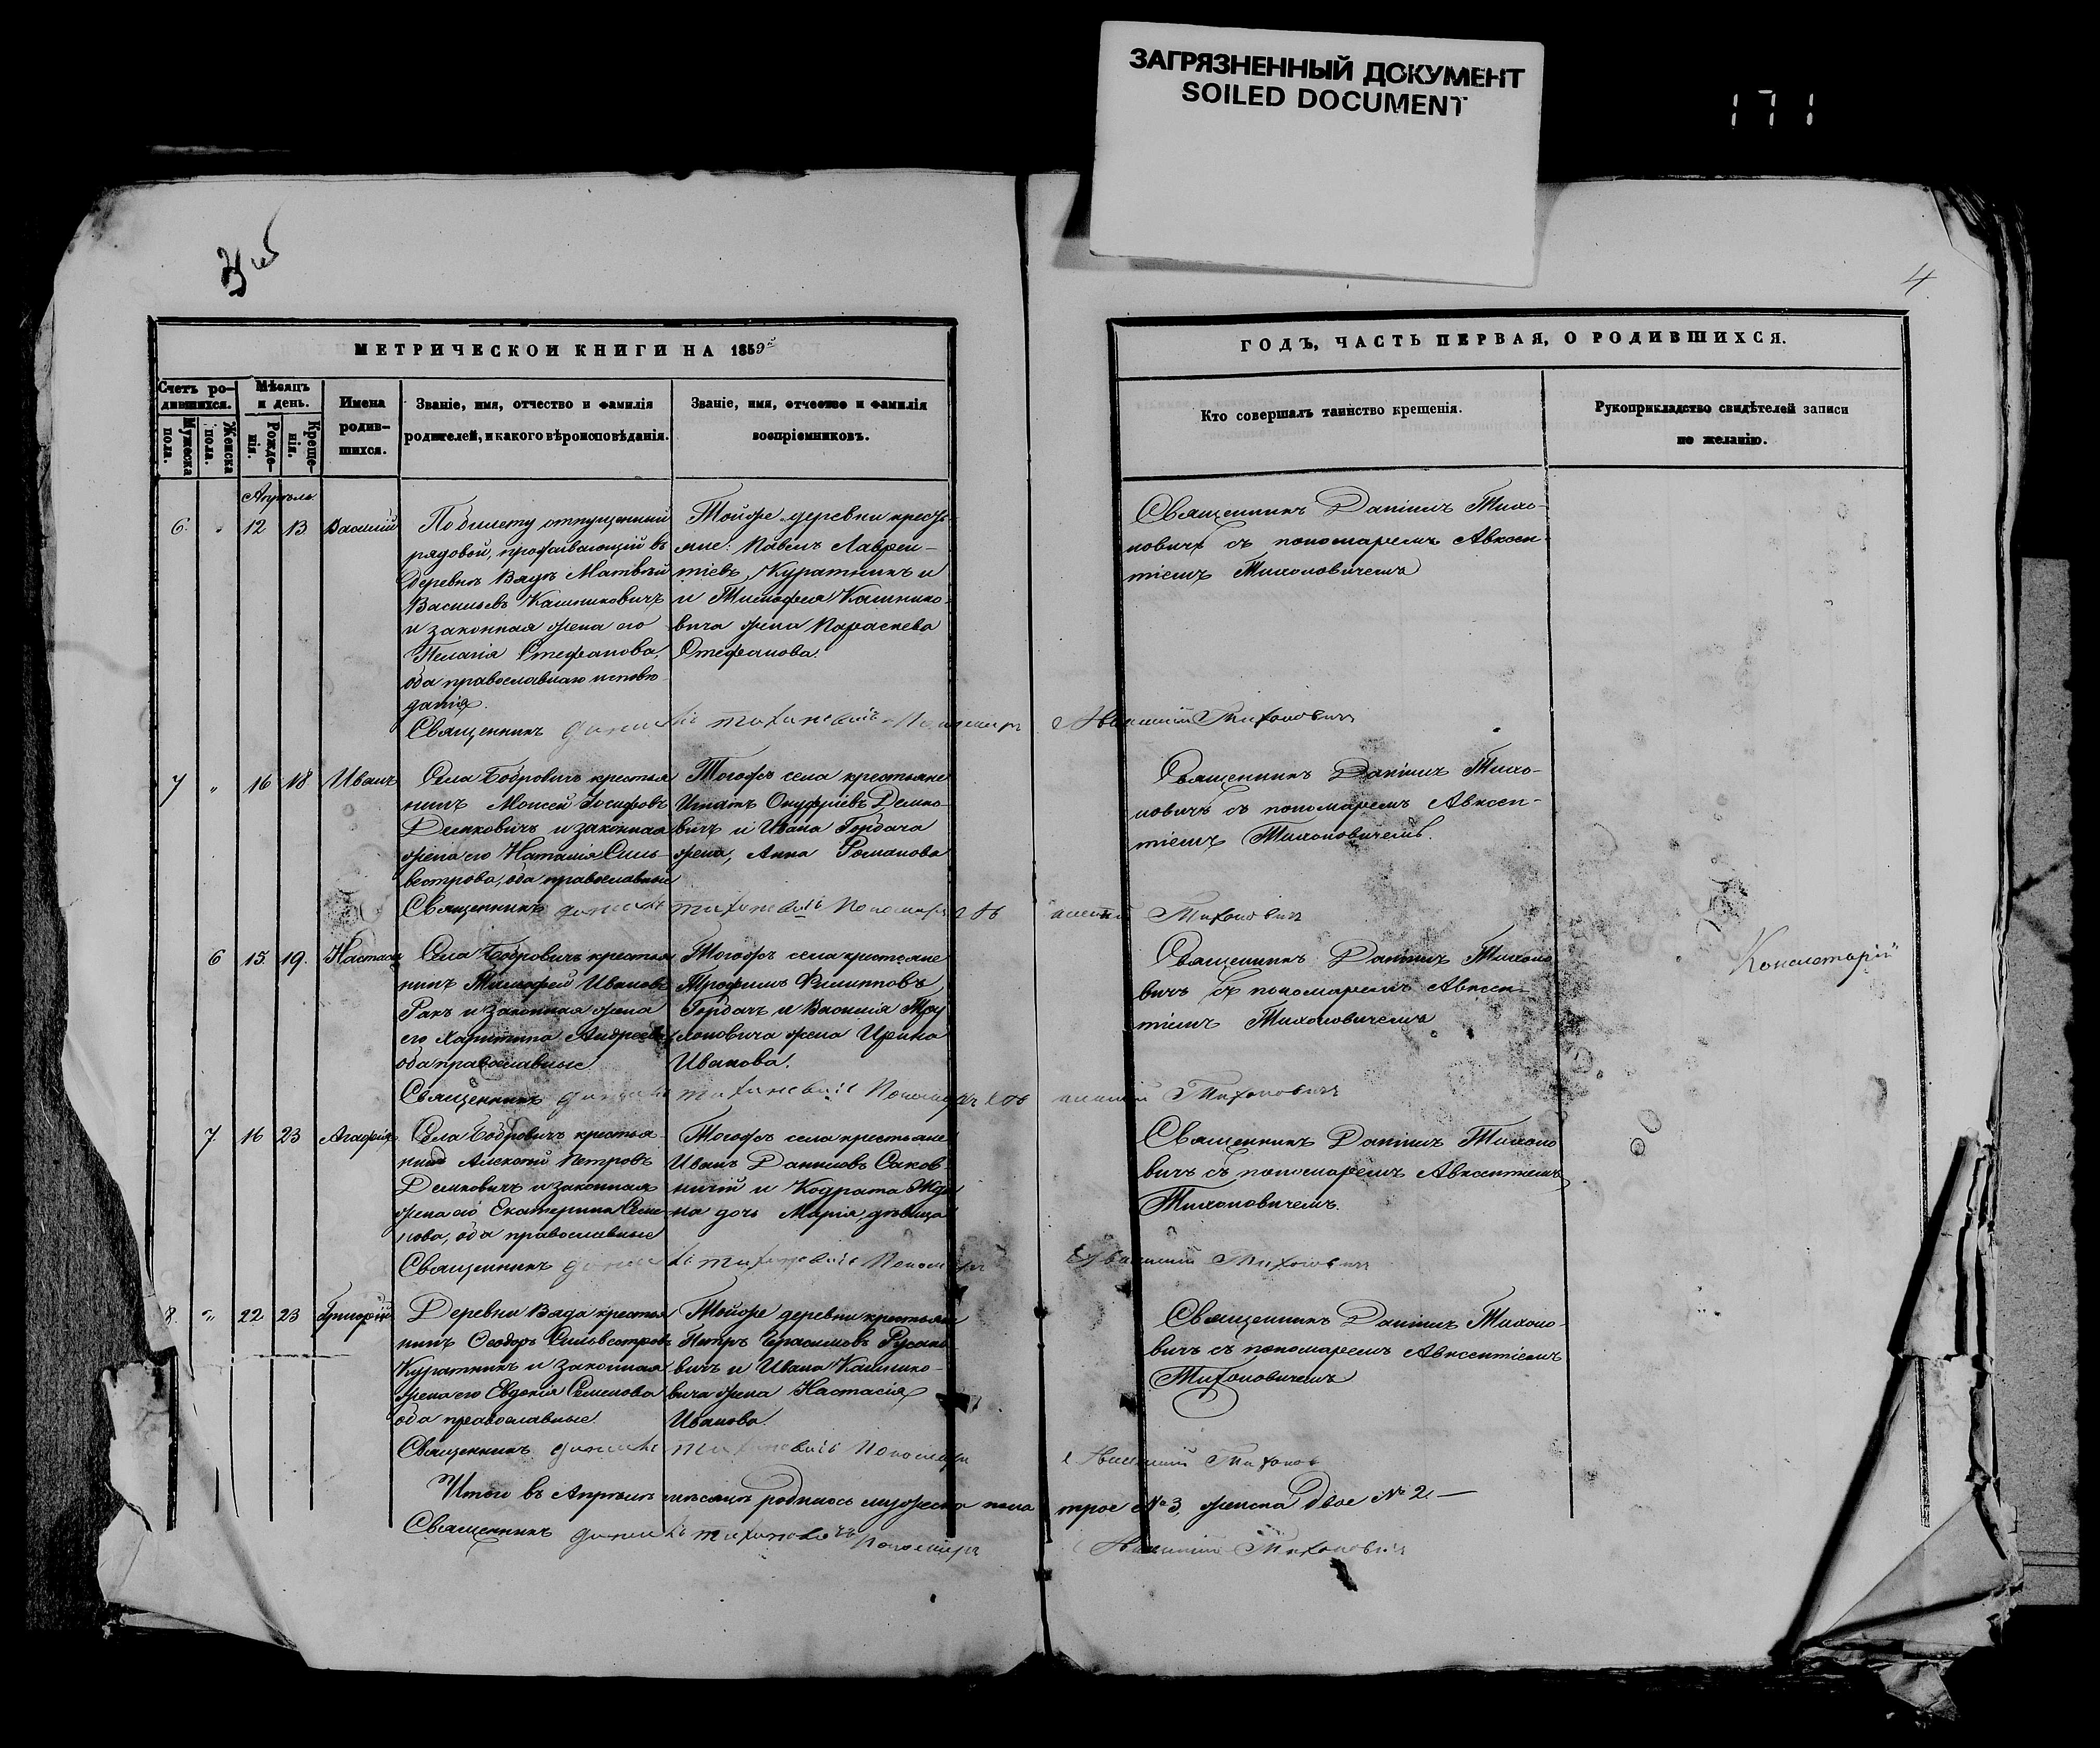 ЗАГРЯЗНЕННЫЙ ДОКУМЕНТ
SOILED DOCUMENT
171
4
МЕТРИЧЕСКОЙ КНИГИ НА 1859й
ГОДЪ, ЧАСТЬ ПЕРВАЯ, О РОДИВШИХСЯ.
Счетъ ро-
дившихся.
Мужеска пола.
Женска пола.
Мѣсяцъ
и день.
Рожде-
нія.
Креще-
нія.
Имена
родив-
шихся.
Званіе, имя, отчество и фамилія
родителей, и какого вѣроисповѣданія.
Званіе, имя, отчество и фамилія
воспріемниковъ.
Кто совершалъ таинство крещенія.
Рукоприкладство свидѣтелей записи
по желанію.
Апрѣль
6. " 12 13 Василій
По билету отпущенный
рядовой, проживающій въ
деревнѣ Вядѣ Матвѣй
Васильевъ Кашниковичъ
и законная жена его
Пелагія Стефанова,
оба православнаго исповѣ-
данія.
Тойже деревни кресть-
яне: Павелъ Лаврен-
тіевъ Куратникъ и
и Тимофея Кашнико-
вича жена Параскева
Стефанова.
Священникъ Даніилъ Тихо-
новичъ съ пономаремъ Авксен-
тіемъ Тихоновичемъ
Священникъ Даніилъ Тихоновичъ Пономарь Авксентій Тихоновичъ
7 " 16 18 Иванъ
Села Бобровичъ крестья-
нинъ Моисей Іосифовъ
Демковичъ и законная
жена его Наталія Силь-
вестрова, оба православные
Тогожъ села крестьяне
Игнатъ Онуфріевъ Демко-
вичъ и Ивана Горбача
жена, Анна Романова
Священникъ Даніилъ Тихо-
новичъ съ пономаремъ Авксен-
тіемъ Тихоновичемъ.
Священникъ Даніилъ Тихоновичъ Пономарь Авксентій Тихоновичъ
6 15. 19. Настасія
Села Бобровичъ крестья-
нинъ Тимофей Ивановъ
Ракъ и законная жена
его Харитина Андреева
оба православные
Тогожъ села крестьяне
Трофимъ Филипповъ
Горбачъ и Василія
жена Ирина
Иванова.
Священникъ Даніилъ Тихоно-
вичъ съ пономаремъ Авксен-
тіемъ Тихоновичемъ
Консисторіи
Священникъ Даніилъ Тихоновичъ Пономарь Авксентій Тихоновичъ
7. 16 23 Агафія
Села Бобровичъ крестья-
нинъ Алексѣй Петровъ
Демковичъ и законная
жена его Екатерина Семе-
нова, оба православные
Тогожъ села крестьяне
Иванъ Даниловъ Саков-
ничій и Кодрата
дочь Марія, дѣвица
Священникъ Даніилъ Тихоно-
вичъ съ пономаремъ Авксентіемъ
Тихоновичемъ.
Священникъ Даніилъ Тихоновичъ Пономарь Авксентій Тихоновичъ
8. " 22 23 Григорій
Деревни Вяда крестья-
нинъ Ѳеодоръ Сильвестровъ
Куратникъ и законная
жена его Евдокія Семенова
оба православные.
Тойже деревни крестьяне
Петръ Герасимовъ Русако-
вичъ и Ивана Кашнико-
вича жена Настасія
Иванова.
Священникъ Даніилъ Тихоно-
вичъ съ пономаремъ Авксентіемъ
Тихоновичемъ
Священникъ Даніилъ Тихоновичъ Пономарь Авксентій Тихонов
Итого въ Апрѣлѣ мѣсяцѣ родилось мужеска пола трое №3, женска двое №2.—
Священникъ Даніилъ Тихоновичъ Пономарь Авксентій Тихоновичъ